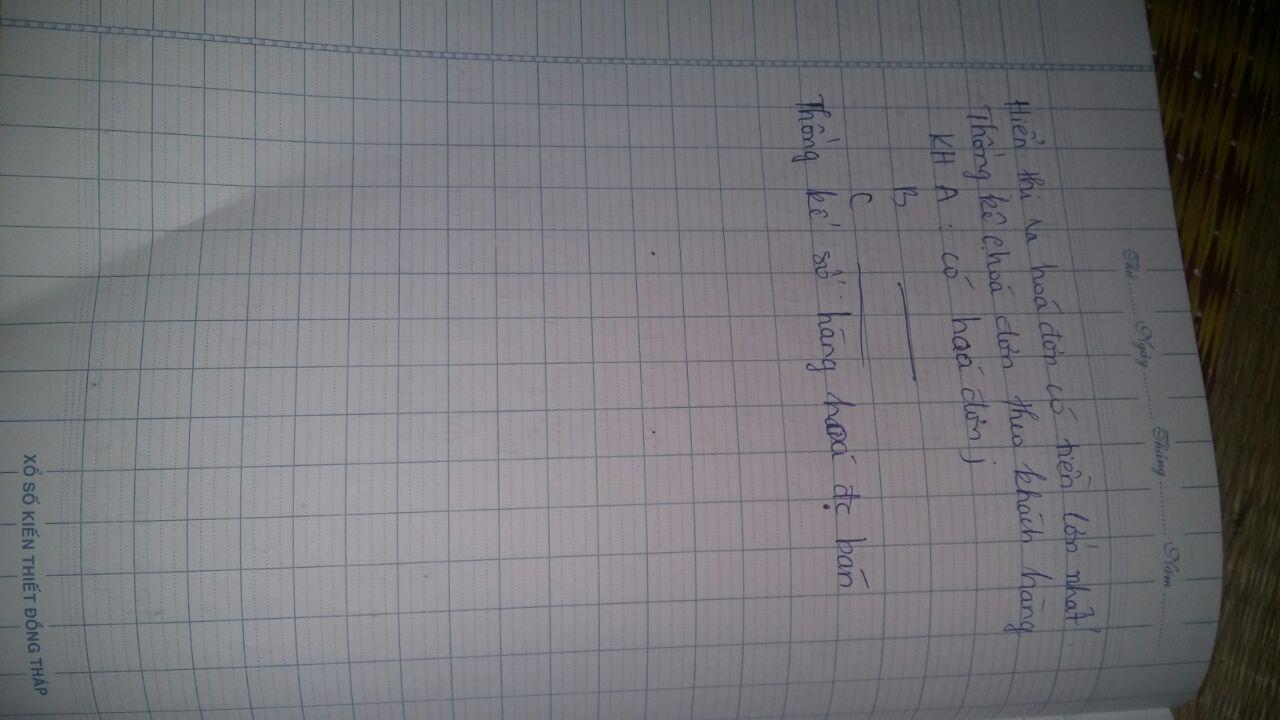 Thứ ........ Ngày ........... Tháng ........... Năm ...........
Hiển thị ra hoá đơn có tiền lớn nhất
Thống kê (hoá đơn theo khách hàng
KH A : có hoá đơn)
B
C
Thống kê số hàng hoá đc bán
XỔ SỐ KIẾN THIẾT ĐỒNG THÁP